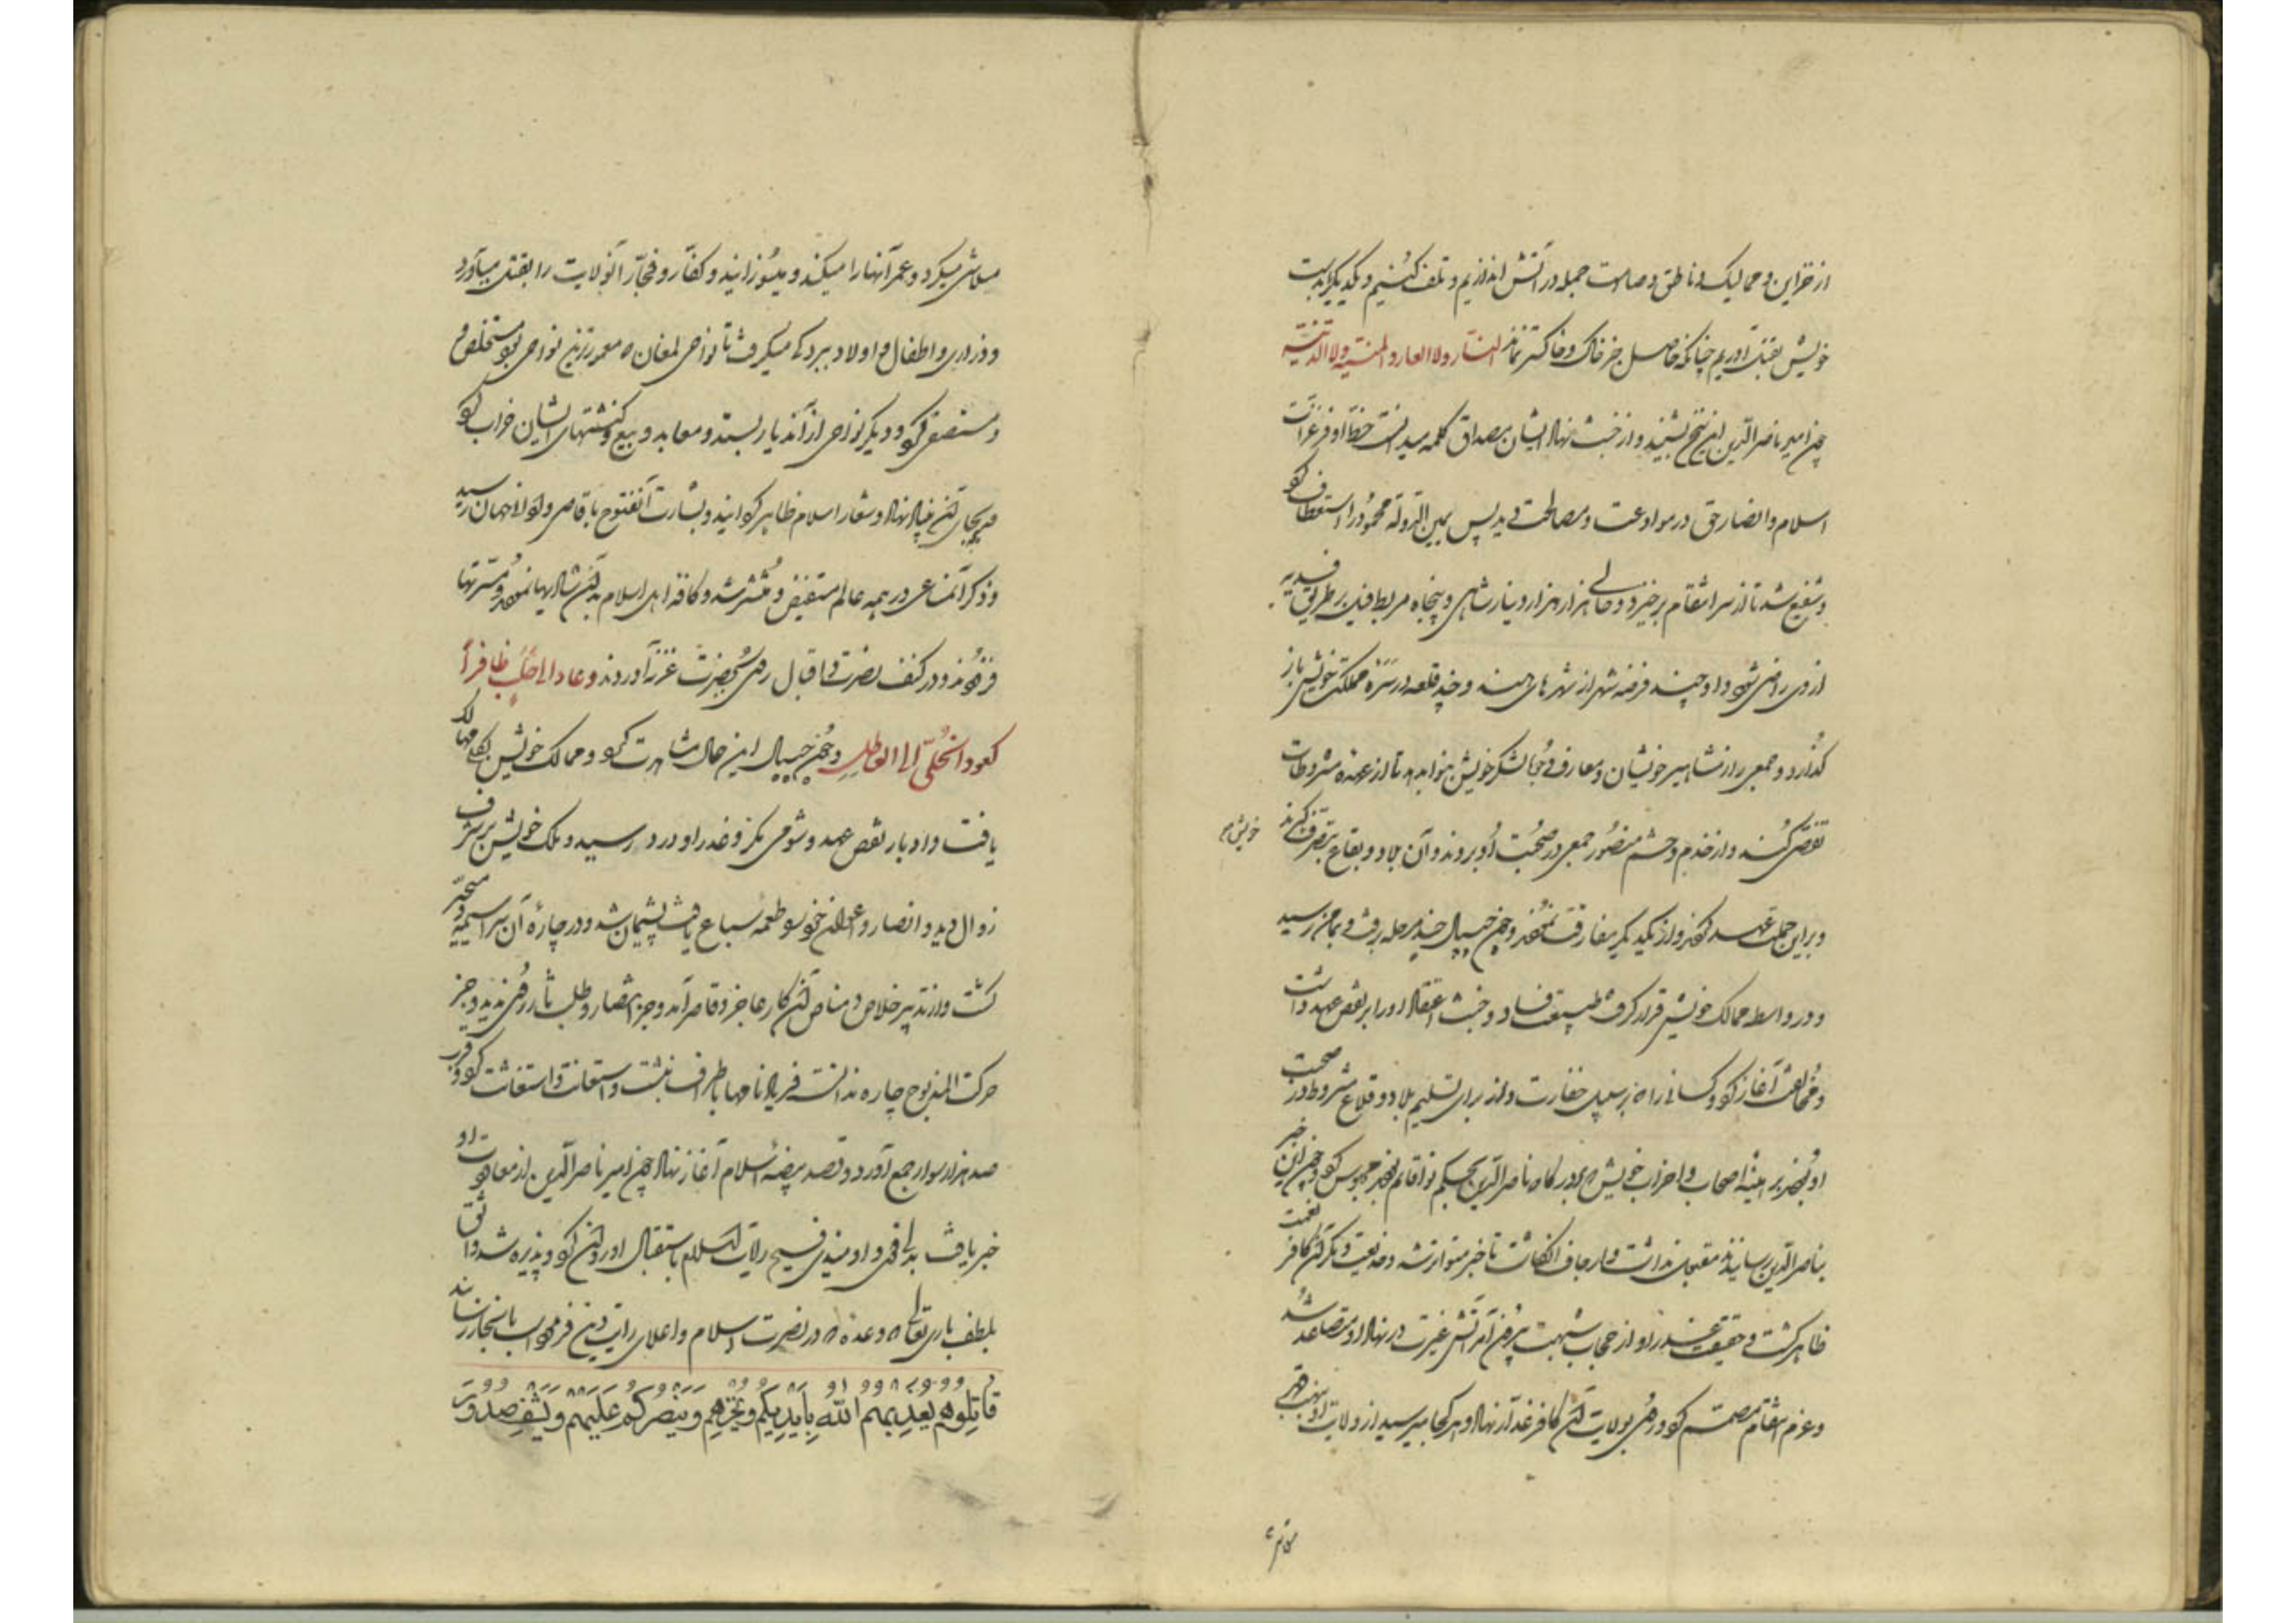 از خزاین و ممالیک و ناطق و صامت جمله در آتش اندازیم و تلف کنیم و یکدیگر بدست
خویش بقتل آوریم چنانکه حاصل جز خاک و خاکستر نماند النار ولا العار والمنیة ولا الدنیة
چون امیر ناصرالدین این بشنید و از خبث نهاد ایشان بمصداق کلمه میدانست
اسلام و انصار حق در موادعت و مصالحت دید پس یمین الدوله محمود را استعطاف کرد
و شفیع شد تا از سر انتقام برخیزد و حالی هزار هزار دینار شاهی و پنجاه مربط فیل بر طریق فدیه
از وی راضی شود و او چند فرضه شهر از شهرهای هند و چند قلعه در سره مملکت خویش باز
گذارد و جمعی را از مشاهیر خویشان و معارف لشکر خویش بنوا بدهد تا از عهده مشروطات
تفصی کنند و از خدم و حشم منصور جمعی در صحبت او بروند و آن بلاد و بقاع بتصرف گیرند
خویش
و براین جملت عهد کردند و از یکدیگر مفارقت نمودند و چون جیپال چند مرحله برفت و بمأمن رسید
و در واسطه ممالک خویش قرار گرفت فساد و خبث اعتقاد او را بر نقض عهد داشت
و مخالفت آغاز کرد و کسانی را که بر سبیل خفارت و از برای تسلیم بلاد و قلاع مشروط در صحبت
او بودند اصحاب و احزاب خویش که بدرگاه ناصرالدین بحکم نوا قائم بودند محبوس کرد و چون این خبر
بناصرالدین رسانیدند مقبول نداشت و ارجاف انگاشت تا خبر متواتر شد و خدیعت و مکر آن کافر نعمت
ظاهر گشت و حقیقت غدر او از حجاب شبهت بیرون آمد آتش غیرت در نهاد او متصاعد شد
و عزم انتقام مصمم کرد و روی بولایت آن کافر غدار نهاد و هر کجا میرسید از ولایت او
متلاشی میکرد و عمر آنها را میکند و میسوزانید و کفار و فجار آن ولایت را بقتل میآورد
و ذراری و اطفال و اولاد ببردگی میگرفت تا نواحی لمغان که معمورترین نواحی بود مستخلص
و مستصفی کرد و دیگر نواحی از آن دیار بستد و معابد و بیع و کنشتهای ایشان خراب کرد
و بجای آن بنیاد نهاد و شعار اسلام ظاهر گردانید و بشارت آن فتوح باقاصی و ادانی جهان رسید
و ذکر آن مساعی در همه عالم مستفیض و منتشر شد و کافه اهل اسلام بدان شادیها نمودند و مسرتها
فزودند و در کنف نصرت و اقبال روی بحضرت غزنه آوردند وعاد الی حلب ظافراً
کعود الحلی الی العاطل و چون جیپال این حال مشاهدت کرد و ممالک خویش
یافت و ادبار نقض عهد و شومی مکر و غدر او در رسید و ملک خویش بر شرف
زوال دید و انصار و اعوان خود طعمه سباع یافت پشیمان شد و در چاره آن سراسیمه و متحیر
گشت و از تدبیر خلاص و مناص آن کار عاجز و قاصر آمد و جز انتصار و طلب ثار روی ندید و جز
حرکت المذبوح چاره ندانست نامها باطراف نبشت و استعانت و استغاثت کرد و قرب
صد هزار سوار جمع آورد و قصد بیضه اسلام آغاز نهاد چون امیر ناصرالدین از معاودت او
خبر یافت بدلی قوی و اومیدی فسیح رایات اسلام باستقبال او روان کرد و پذیره شد واثق
بلطف باری تعالی که وعده که در نصرت اسلام و اعلای رایت دین فرموده است بانجاز رساند
قَاتِلُوهُمْ يُعَذِّبْهُمُ اللّهُ بِأَيْدِيكُمْ وَيُخْزِهِمْ وَيَنْصُرْكُمْ عَلَيْهِمْ وَيَشْفِ صُدُورَ